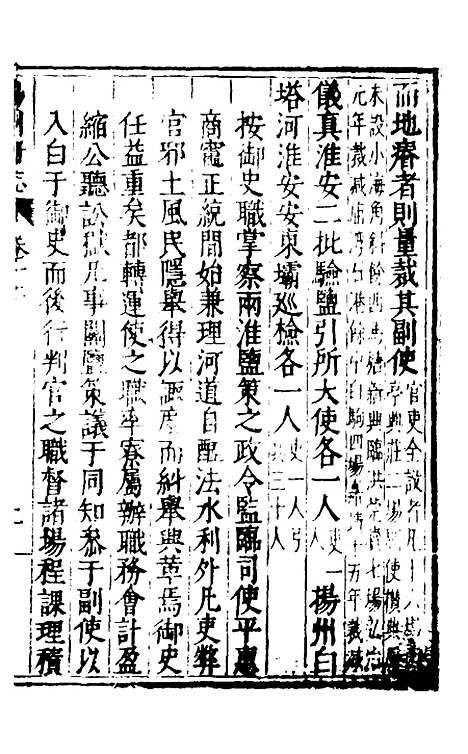 而地瘠者則量裁其副使官吏全設者凡十八場
未設小海角斜餘西馬塘新興臨洪七場
元年裁減廟灣白駒四場十五年裁減
儀真淮安二批驗鹽引所大使各一人吏一 揚州白
塔河淮安安東壩巡檢各一人吏一人弓三十人
按御史職掌察兩淮鹽策之政令監臨司使平惠
商竈正統間始兼理河道自鹽法水利外凡吏弊
官邪土風民隱舉得以厭度而糾舉興革焉御史
任益重矣都轉運使之職率寮屬辦職務會計盈
縮公聽訟獄凡事關鹽策議于同知參于副使以
入白于御史而後行判官之職督諸場程課理積